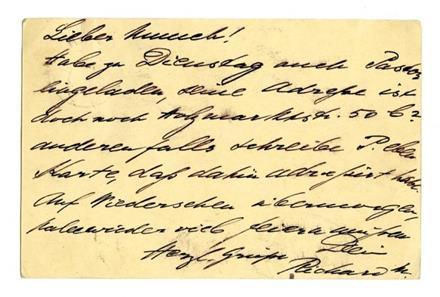 Lieber Munch!
Habe zu Dienstag auch Pastor
eingeladen, seine Adresse ist
doch noch Holzmarktstr. 50 b?
anderenfalls schreibe P. eine
Karte, daß dahin adressirt habe.
Auf Wiedersehen übermorgen,
wieder viel
Herzl. Gruss Dein
Richard M.